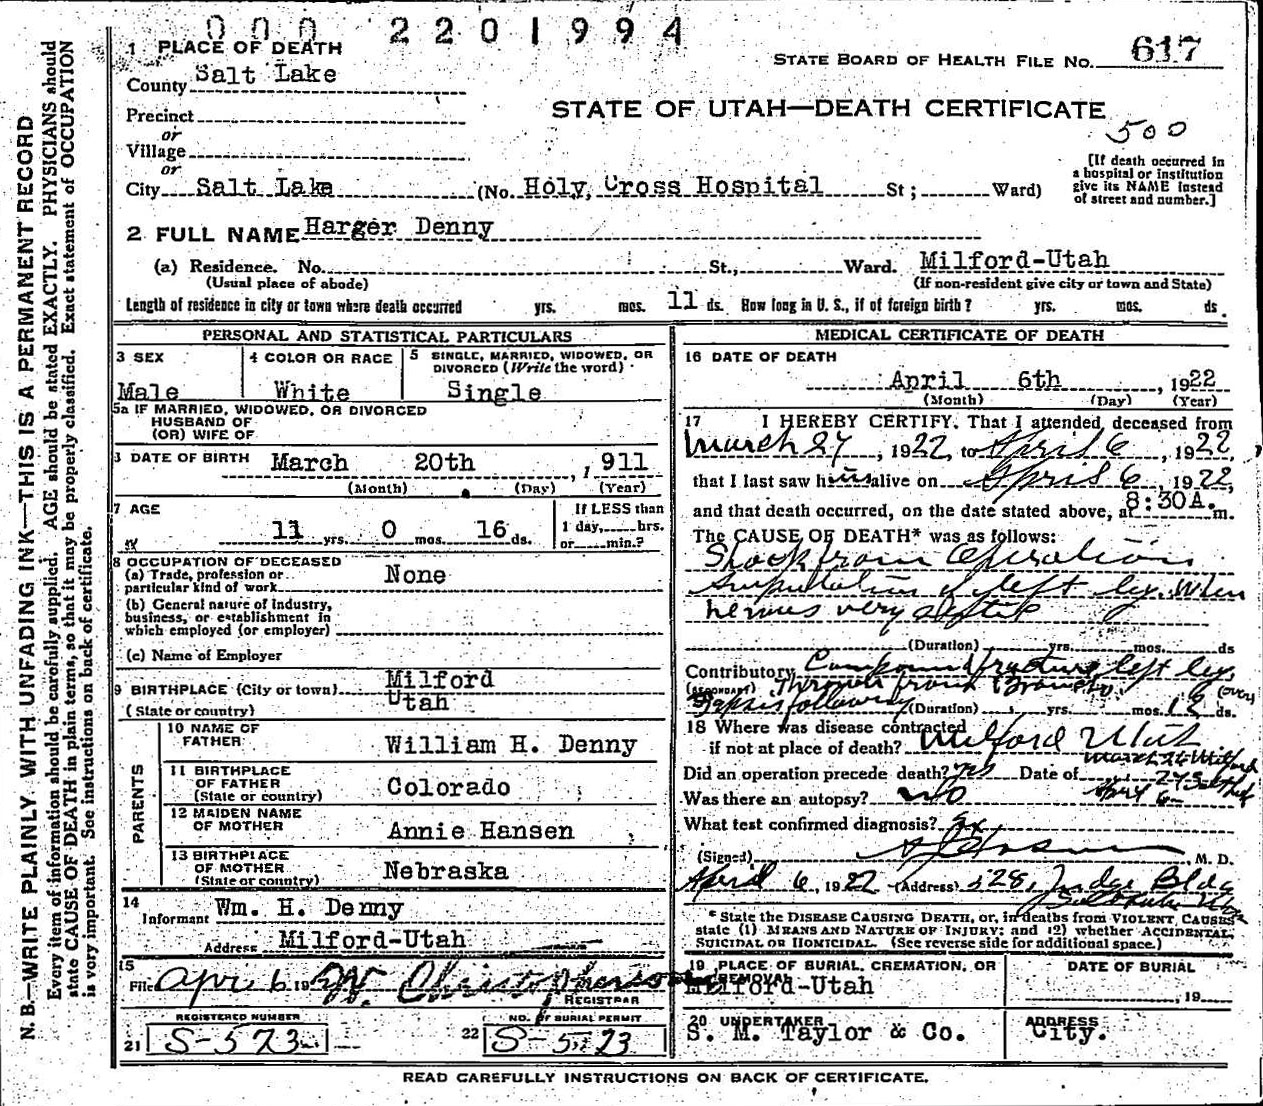 000 2201994
1 PLACE OF DEATH
STATE BOARD OF HEALTH FILE NO. 617
County Salt Lake
STATE OF UTAH—DEATH CERTIFICATE
Precinct
or
500
Village
or
[If death occurred in
a hospital or institution
give its NAME instead
of street and number.]
City Salt Lake (No. Holy Cross Hospital St; Ward)
2 FULL NAME Harger Denny
(a) Residence. No. St., Ward. Milford-Utah
(Usual place of abode) (If non-resident give city or town and State)
Length of residence in city or town where death occurred yrs. mos. 11 ds. How long in U. S., if of foreign birth? yrs. mos. ds.
PERSONAL AND STATISTICAL PARTICULARS
3 SEX
Male
4 COLOR OR RACE
White
5 SINGLE, MARRIED, WIDOWED, OR
DIVORCED (Write the word)
Single
5a IF MARRIED, WIDOWED, OR DIVORCED
HUSBAND OF
(OR) WIFE OF
DATE OF BIRTH March 20th, 1911
(Month) (Day) (Year)
7 AGE
11 yrs. 0 mos. 16 ds.
If LESS than
1 day, hrs.
or min.?
8 OCCUPATION OF DECEASED
(a) Trade, profession or
particular kind of work None
(b) General nature of Industry,
business, or establishment in
which employed (or employer)
(c) Name of Employer
9 BIRTHPLACE (City or town) Milford
(State or country) Utah
PARENTS
10 NAME OF
FATHER William H. Denny
11 BIRTHPLACE
OF FATHER
(State or country) Colorado
12 MAIDEN NAME
OF MOTHER Annie Hansen
13 BIRTHPLACE
OF MOTHER
(State or country) Nebraska
14
Informant Wm. H. Denny
Address Milford-Utah
15
File April 6 19 22 W. Christopherson
REGISTRAR
REGISTERED NUMBER
21 S-573
NO. OF BURIAL PERMIT
22 S-573
MEDICAL CERTIFICATE OF DEATH
16 DATE OF DEATH
April 6th, 1922
(Month) (Day) (Year)
17 I HEREBY CERTIFY, That I attended deceased from
March 27, 1922, to April 6, 1922,
that I last saw him alive on April 6, 1922,
and that death occurred, on the date stated above, at 8:30A. m.
The CAUSE OF DEATH* was as follows:
Shock from Operation
Amputation of left leg. When
he was very septic
(Duration) yrs. mos. ds
Contributory Compound fracture left leg.
(SECONDARY) Thrown from Bronco (over)
Sepsis following (Duration) yrs. mos. 12 ds.
18 Where was disease contracted
if not at place of death? Milford Utah
March 26 Milford
Did an operation precede death? yes Date of 27 Salt Lake
April 6
Was there an autopsy? No
What test confirmed diagnosis?
(Signed) M. D.
April 6, 1922 (Address) 528 Judge Bldg
Salt Lake
* State the DISEASE CAUSING DEATH, or, in deaths from VIOLENT CAUSES
state (1) MEANS AND NATURE OF INJURY; and (2) whether ACCIDENTAL
SUICIDAL OR HOMICIDAL. (See reverse side for additional space.)
19 PLACE OF BURIAL, CREMATION, OR
REMOVAL
Milford-Utah
DATE OF BURIAL
, 19
20 UNDERTAKER
S. M. Taylor & Co.
ADDRESS
City.
READ CAREFULLY INSTRUCTIONS ON BACK OF CERTIFICATE.
N. B.—WRITE PLAINLY WITH UNFADING INK—THIS IS A PERMANENT RECORD
Every item of information should be carefully supplied. AGE should be stated EXACTLY. PHYSICIANS should
state CAUSE OF DEATH in plain terms, so that it may be properly classified. Exact statement of OCCUPATION
is very important. See instructions on back of certificate.